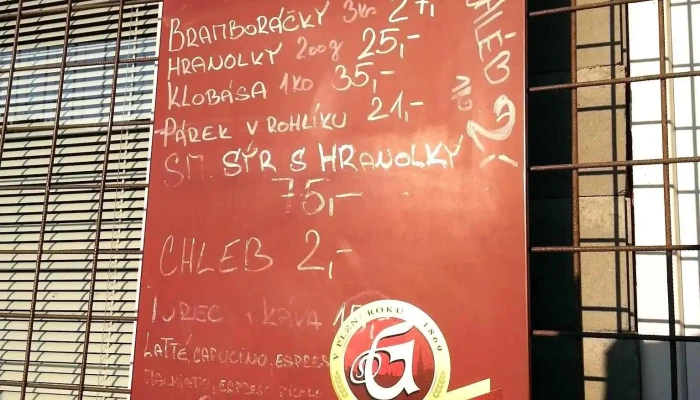 BRAMBORÁČKY 3ks 27,-
HRANOLKY 200g 25,-
KLOBÁSA 1KO 35,-
PÁREK V ROHLÍKU 21,-
SM. SÝR S HRANOLKY
75,-
CHLEB 2,-
KÁVA
LATTÉ, CAPUCINO,
CHLÉB 2,-
V PLZNI ROKU 1869